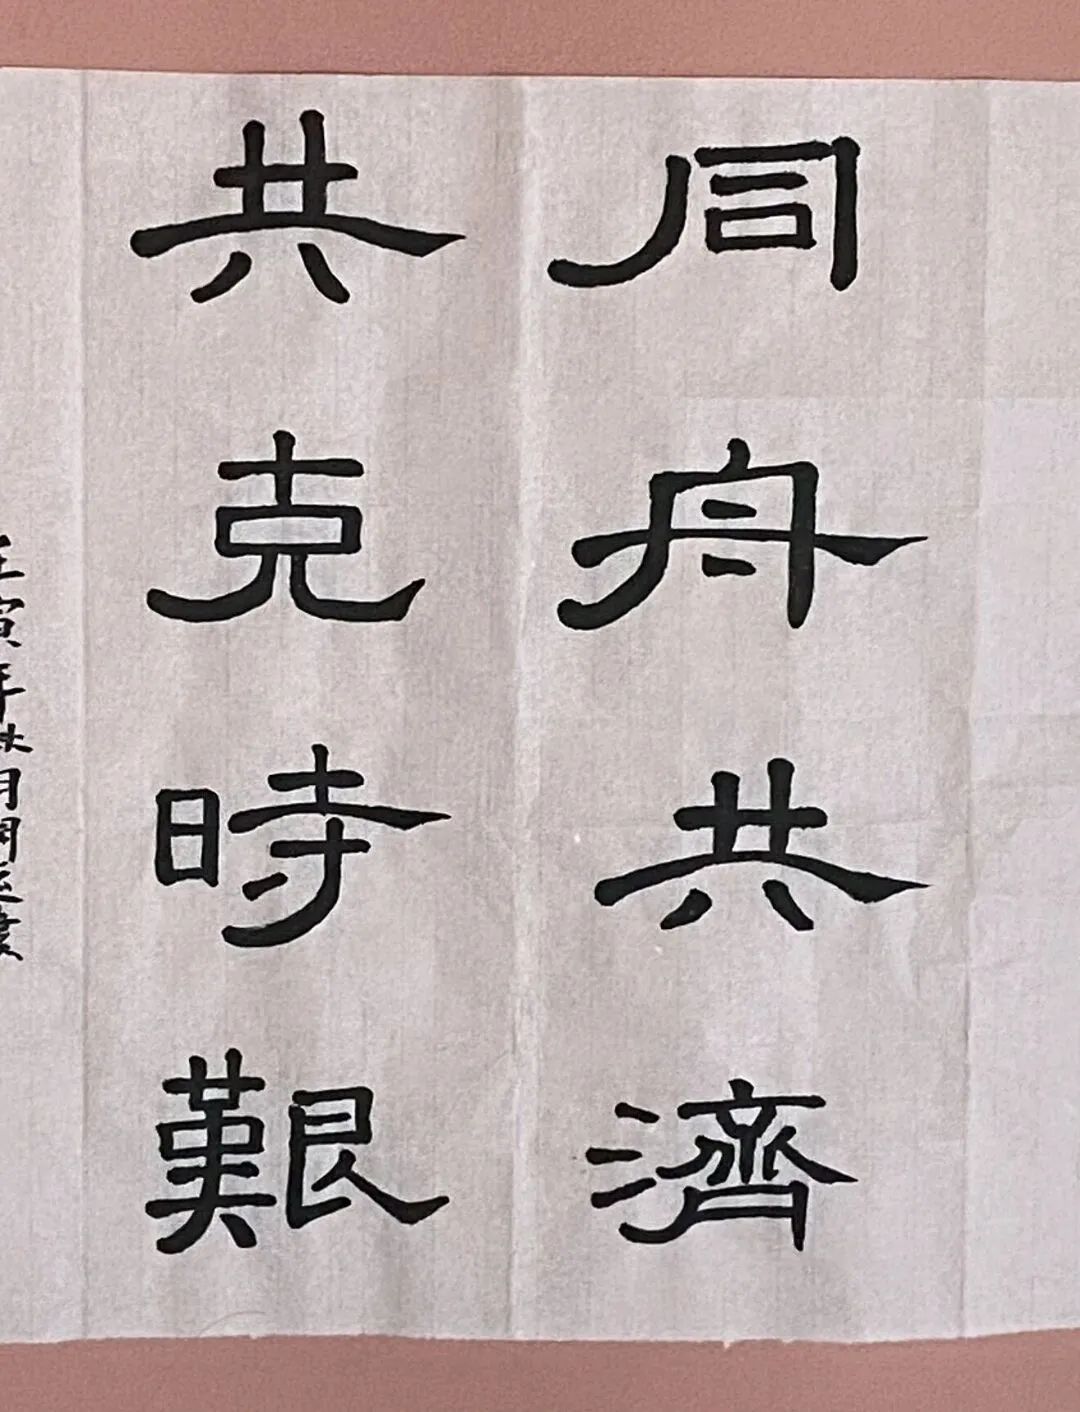 同舟共濟
共克時艱
壬寅年秋月